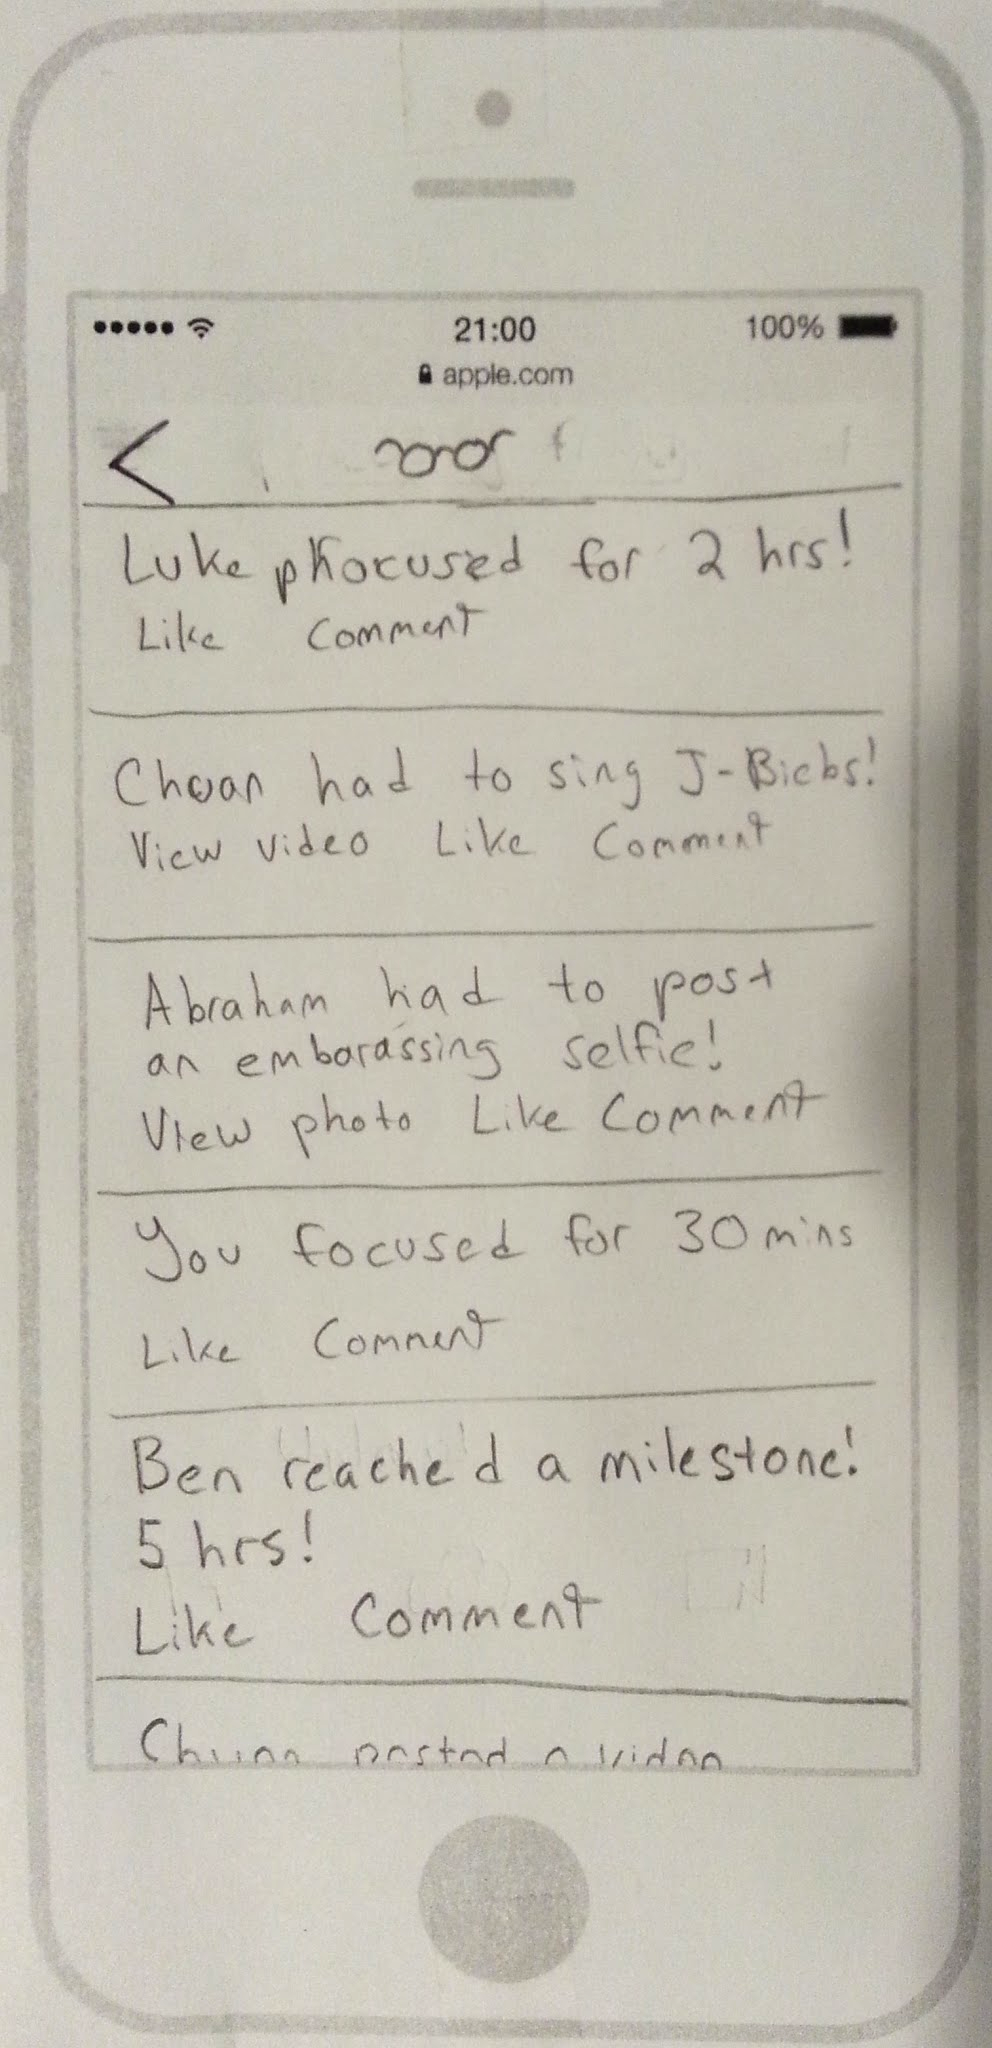 21:00
100%
apple.com
Luke phocused for 2 hrs!
Like Comment
Chuan had to sing J-Biebs!
View video Like Comment
Abraham had to post
an embarassing selfie!
View photo Like Comment
You focused for 30 mins
Like Comment
Ben reached a milestone!
5 hrs!
Like Comment
posted a video